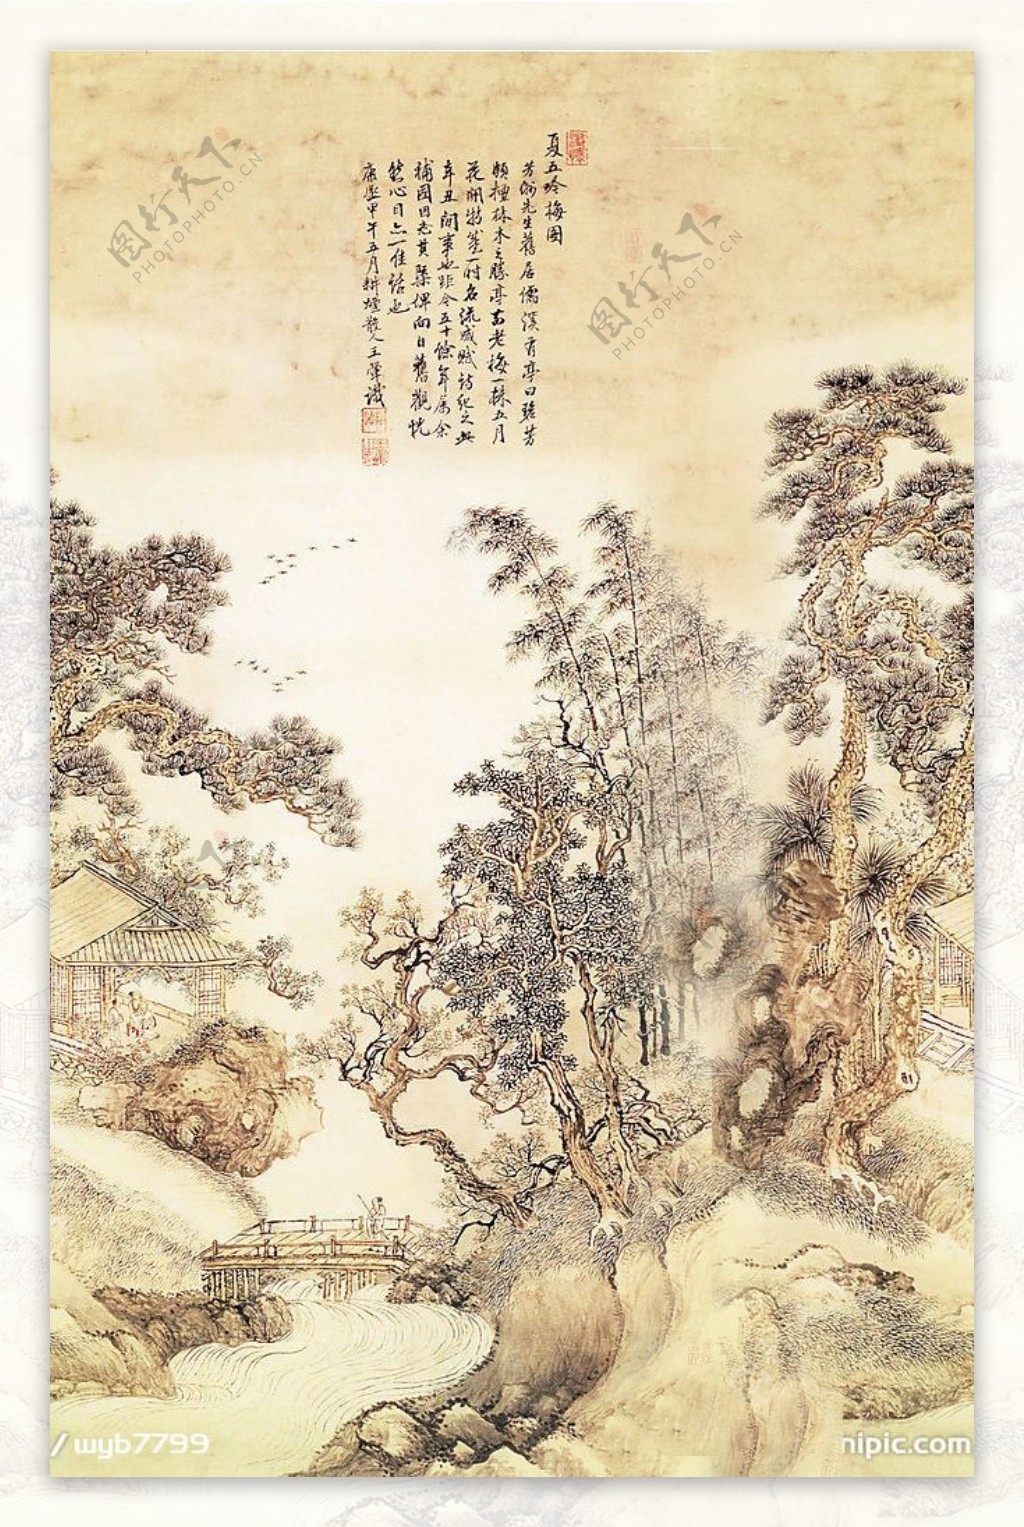 夏五吟梅图
芳洲先生旧居儒溪有亭曰聽芳
頗擅林木之勝亭前老梅一株五月
花開特盛一时名流咸賦诗纪之此
辛丑間事也距今五十馀年属余
補图因忘其
向日舊觀恍
然心目点一佳话也
康熙甲午五月耕煙散人王翚識
图行天下
PHOTOPHOTO.CN
图行天下
PHOTOPHOTO.CN
/ wyb7799
nipic.com